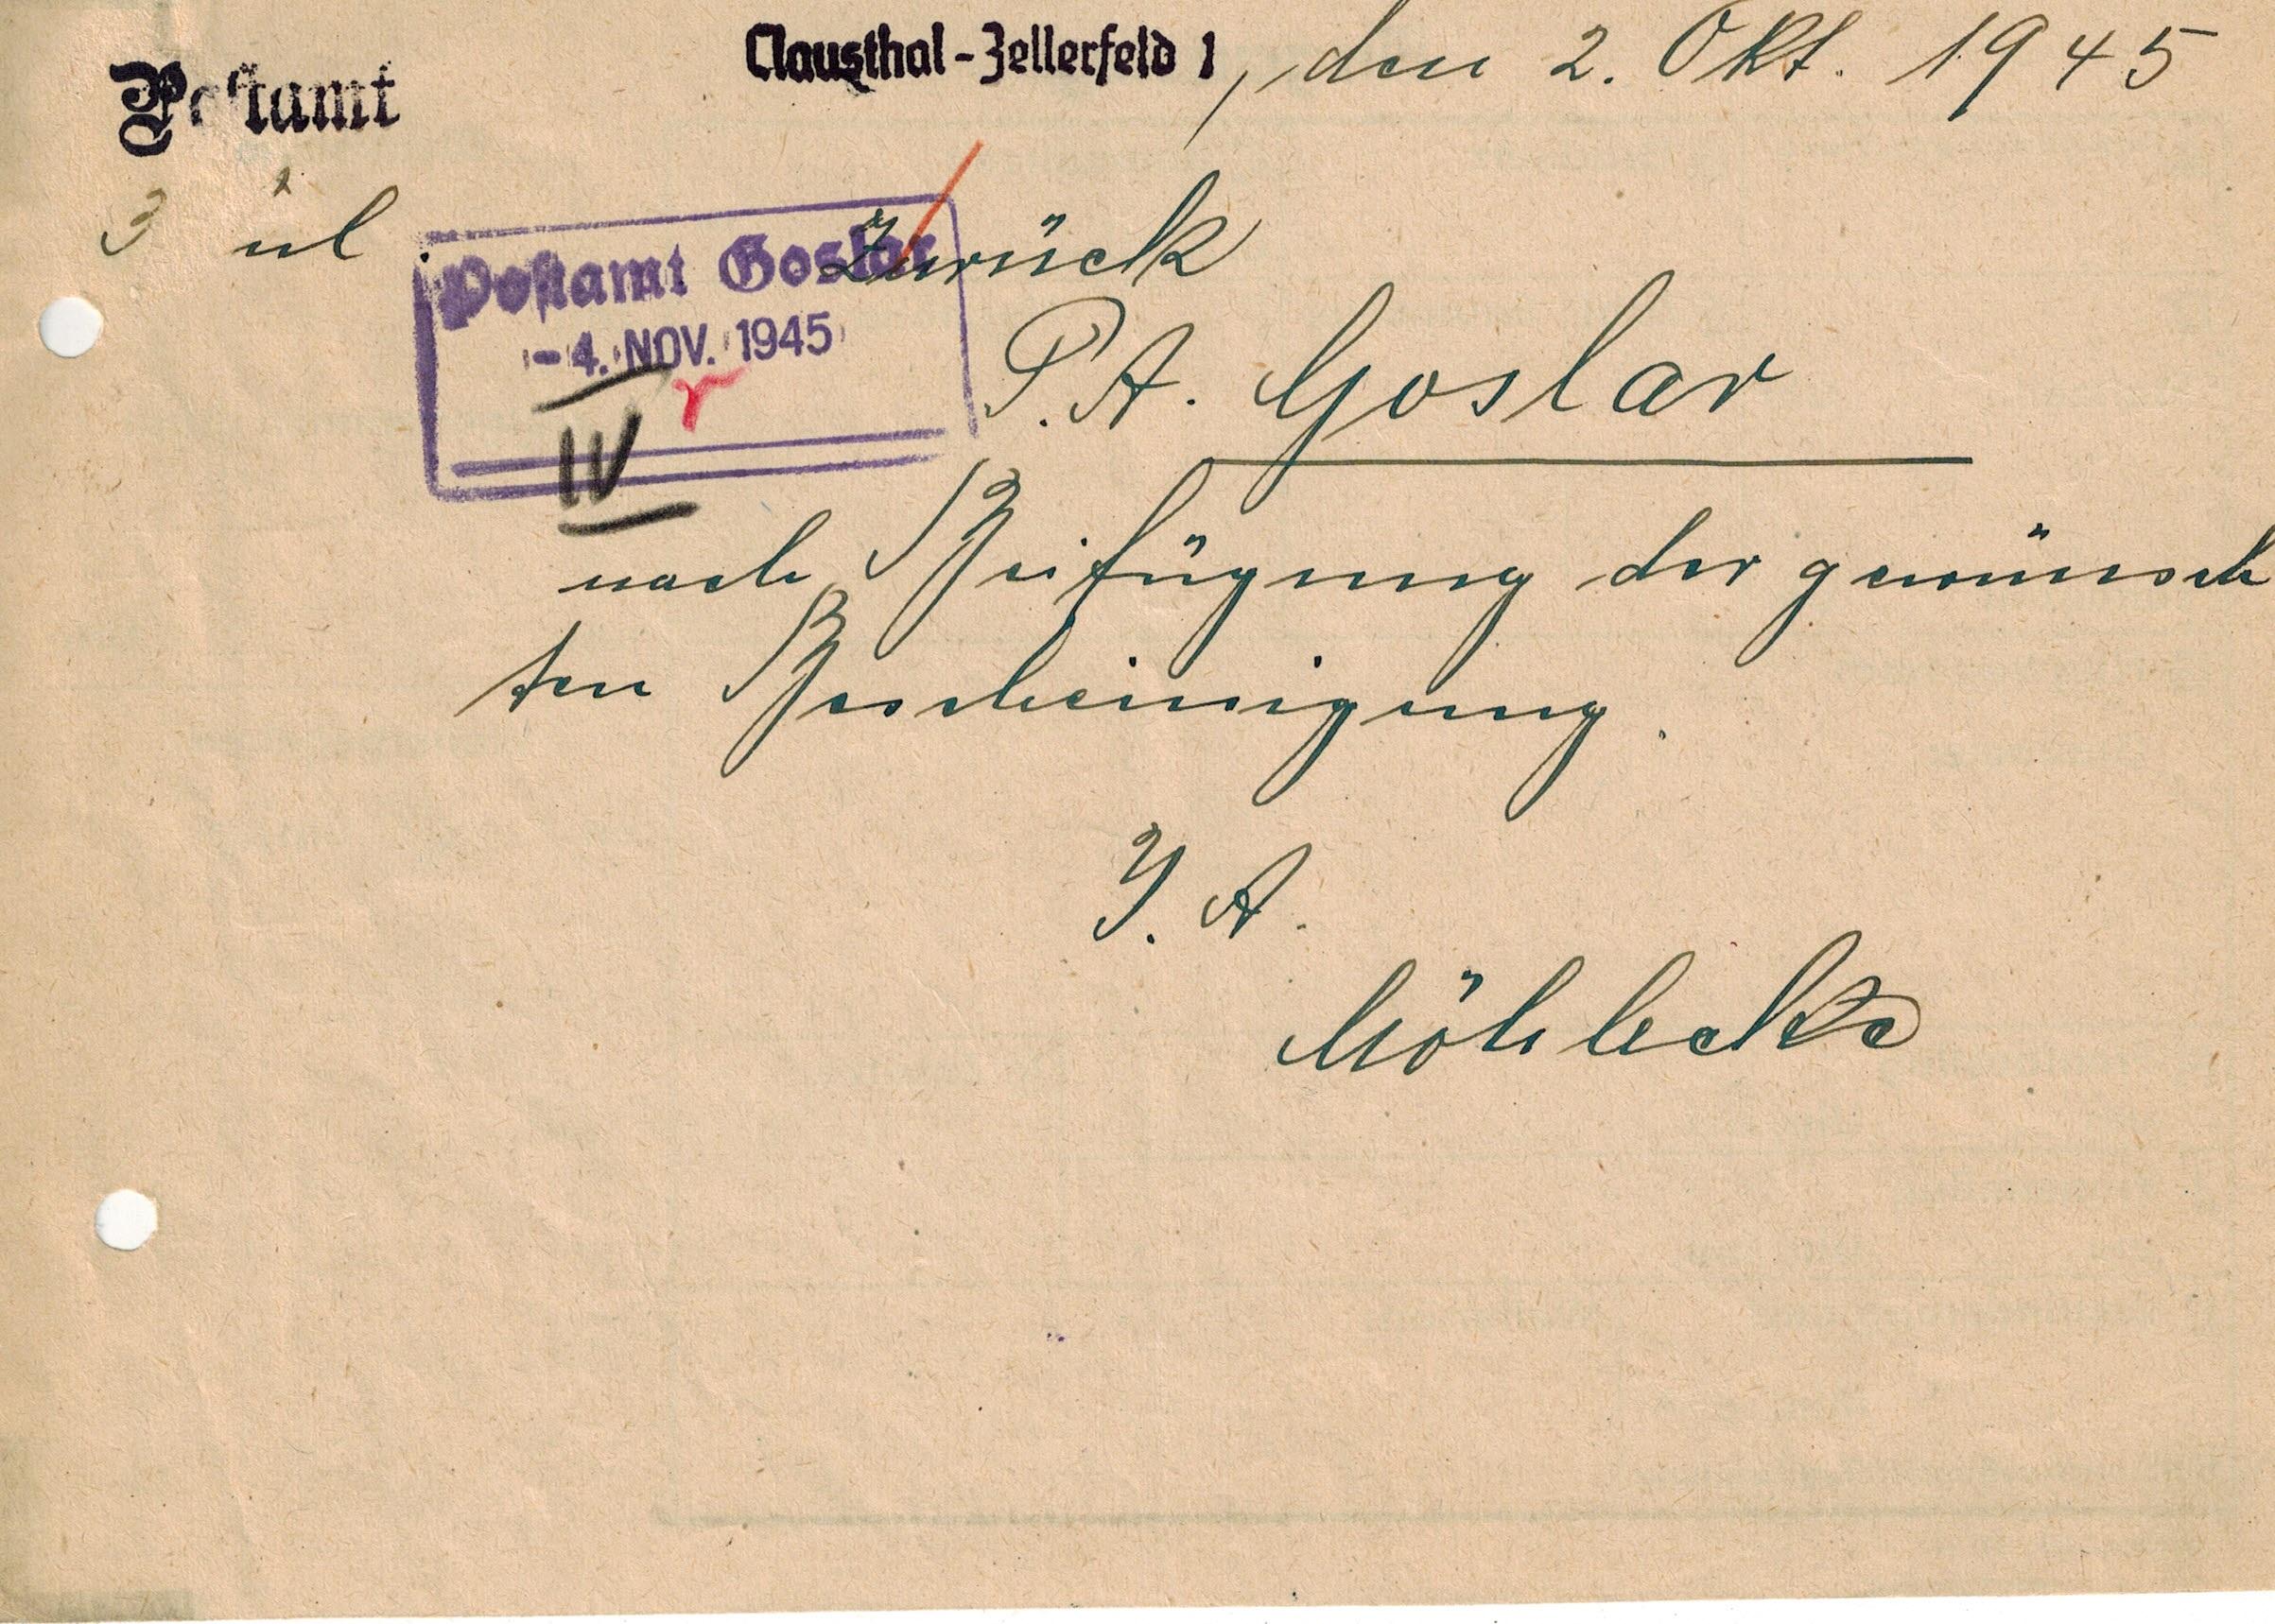 Clausthal-Zellerfeld 1, den 2. Okt. 1945
Postamt
3
Zurück
Postamt Goslar
-4. NOV. 1945
IV
P. A. Goslar
nach Beifügung der gewünsch
ten Bescheinigung.
I. A.